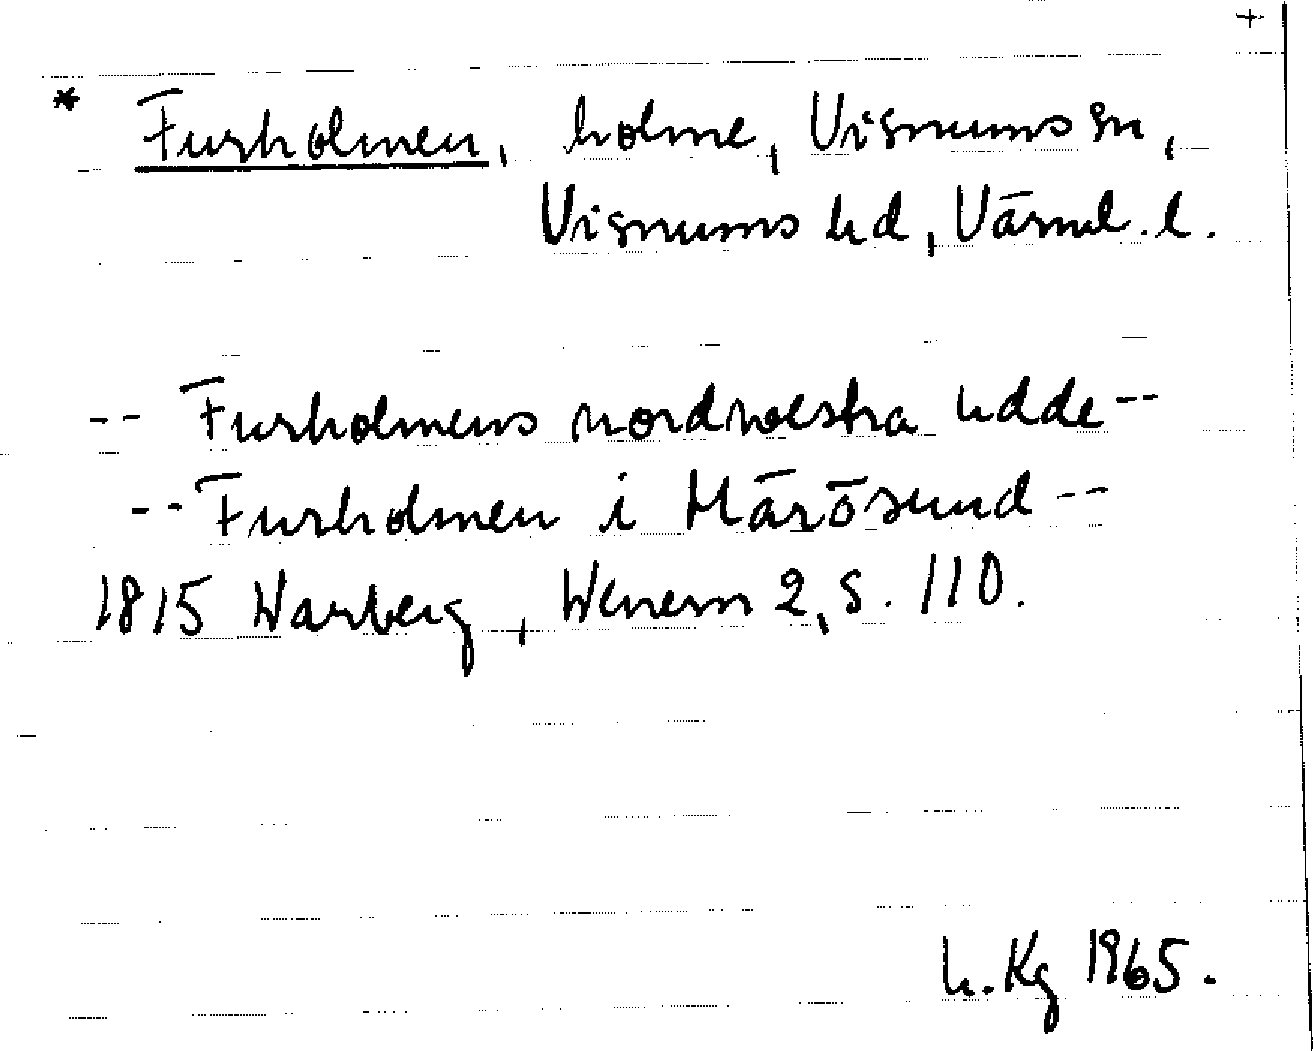 +
* Furholmen, holme, Visnums sn,
Visnums hd, Värml. l.
-- Furholmens nordwestra udde --
-- Furholmen i Märösund --
1815 Warberg, Wenern 2, S. 110.
L. Kg 1965.